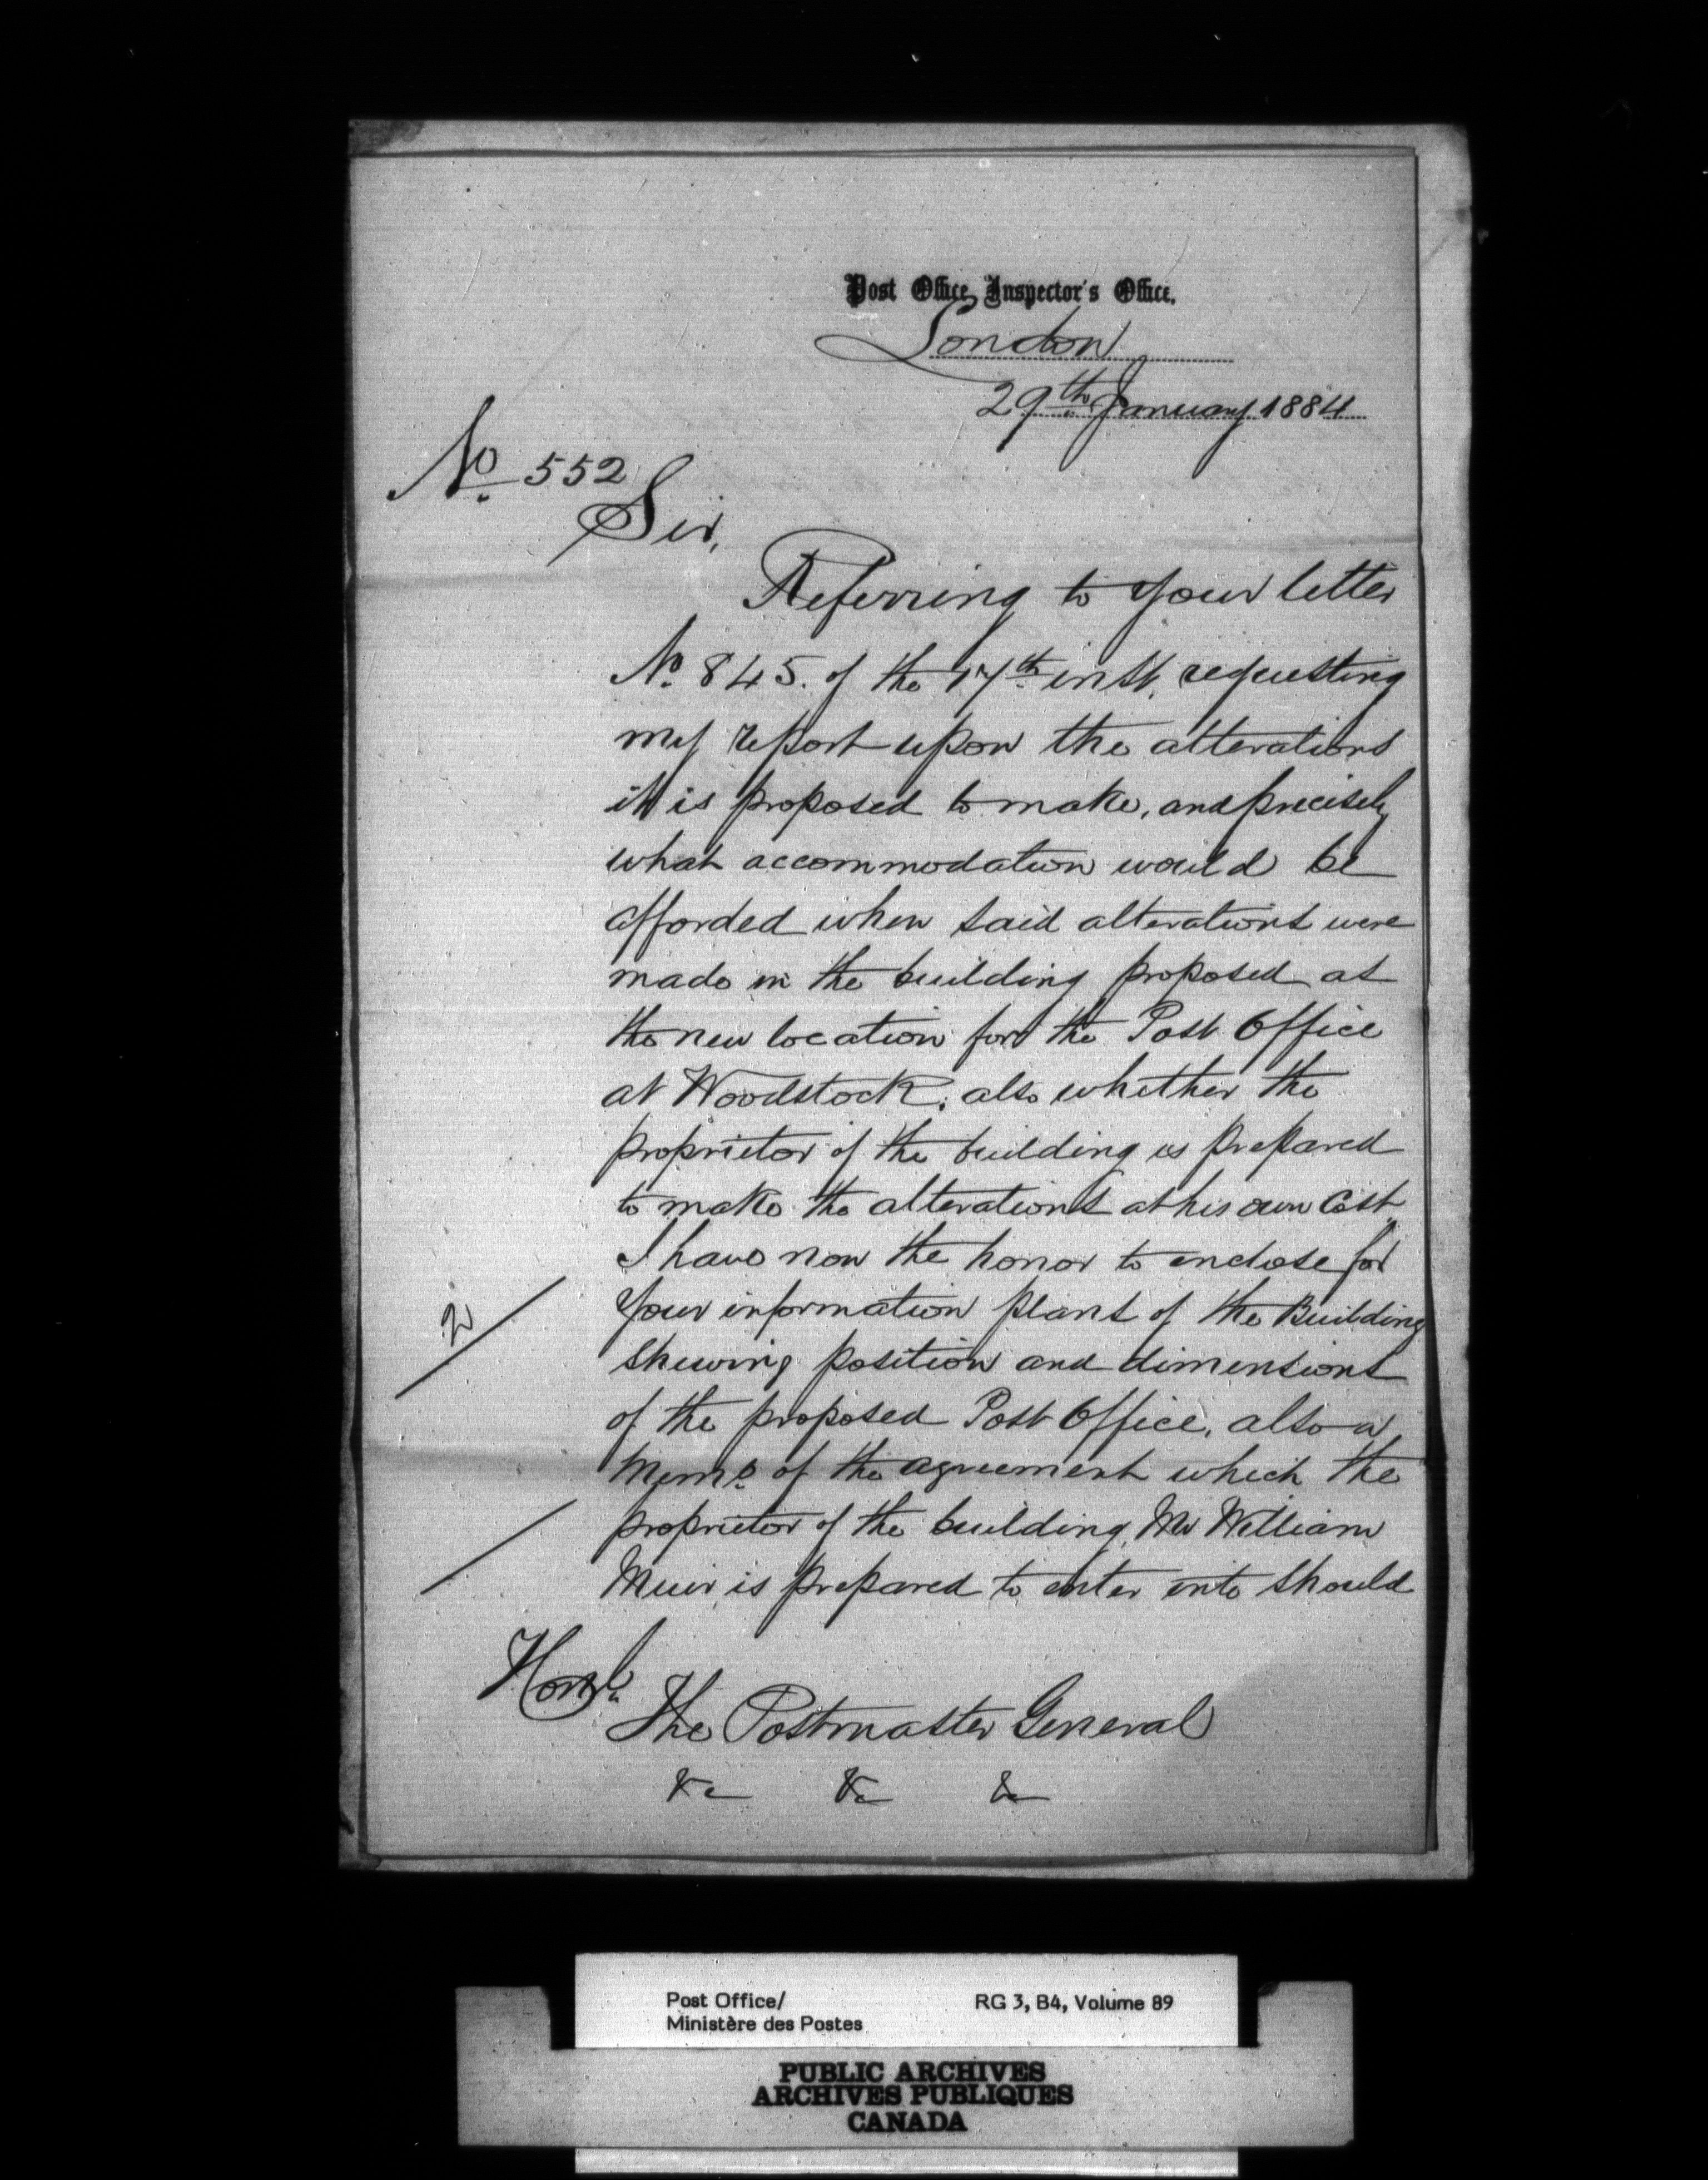 Post Office Inspector's Office.
London
29th January 1884
No 552
Sir,
Referring to your letter
No. 845. of the 17th inst. requesting
my report upon the alterations
it is proposed to make, and precisely
what accommodation would be
afforded when said alterations were
made in the building proposed as
the new location for the Post Office
at Woodstock; also whether the
proprietor of the building is prepared
to make the alterations at his own Cost
I have now the honor to enclose for
your information plans of the Building
shewing position and dimensions
2
of the proposed Post Office, also a
Memo. of the agreement which the
proprietor of the building, Mr William
Muir is prepared to enter into should
Honble
The Postmaster General
&c &c &c
Post Office/
Ministère des Postes
RG 3, B4, Volume 89
PUBLIC ARCHIVES
ARCHIVES PUBLIQUES
CANADA